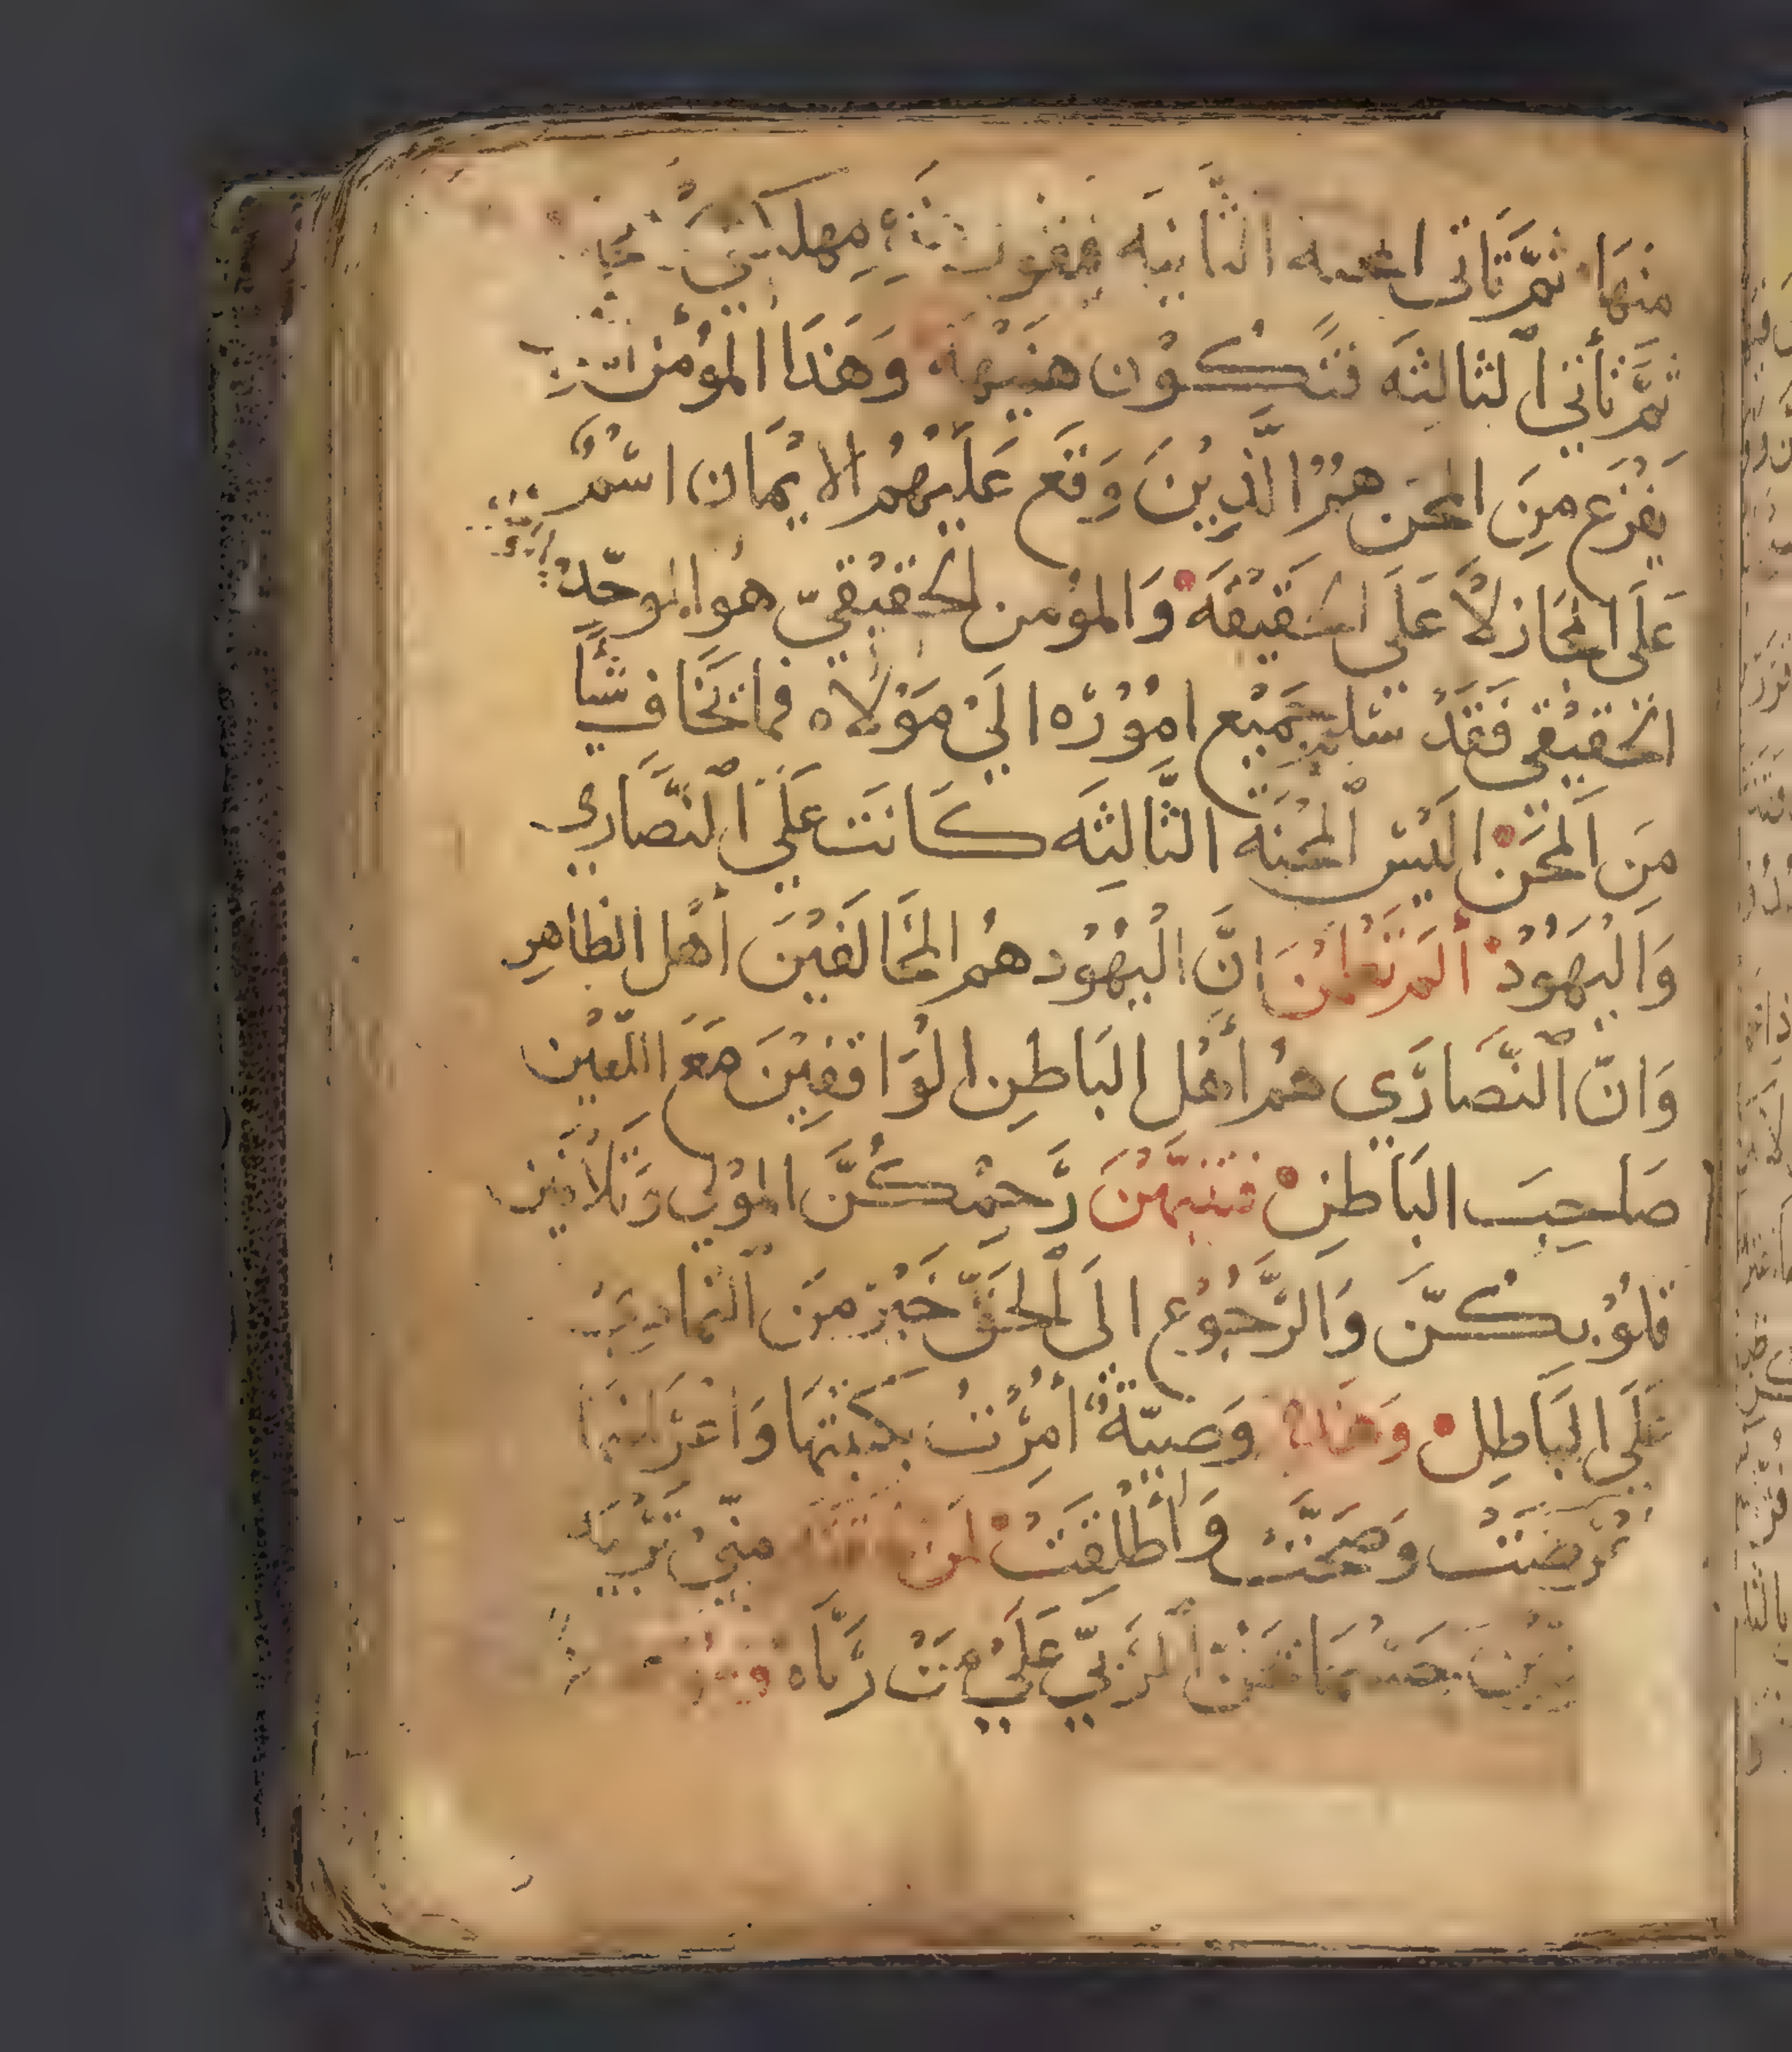 منها ثمَّ تاتى المحنه الثَّانيَه
ثمَّ تأتي الثالثه فتَكُوْن هنيْهَه وَهَذَا المؤمن الّذي
يفْزَع مِنَ المحَن همُ الَّذِيْنَ وَقَع عَليْهمُ الايْمَان اسْمٌ
عَلَى المجَاز لاَ عَلَي الحَقيْقَه وَالمؤمن الحقيْقيّ هو الموحّد
الحقيْقي فَقَدْ سَلم جَميْع امُوْرُه اليَ مَوْلاه فما يَخَاف شيأً
مِنَ المحَنْ اليْسَ المحْنَه الثَّالثِه كَانَت عَلَي النَّصَارى
وَاليْهُوُدْ ألَمْ تعْلمْنَ انَّ اليْهُوُد همُ المخَالفيْنَ أهْل الظاهِر
وَانّ النَّصَارَى همُ أهْل البَاطِن الوَاقفِيْنَ مَعَ اللّعيْن
صَاحِبَ البَاطِنْ فتنبَّهْنَ رَّحِمْكُنَّ الموْلى وَتلاَفيْن
قلوُبكُنَّ وَالرَّجُوُع الَى الحَقّ خَيْرٌ منَ التمادي
عَلَي البَاطِلْ وَهَذه وَصيّةٌ أمِرْتُ بكتبتهَا وَاعْرَاضهَا
عُرِّضَتْ وَصَحَّتْ وَأطْلِقَتْ لمن منّيْ
علَيْ مَنْ رَبَّاه